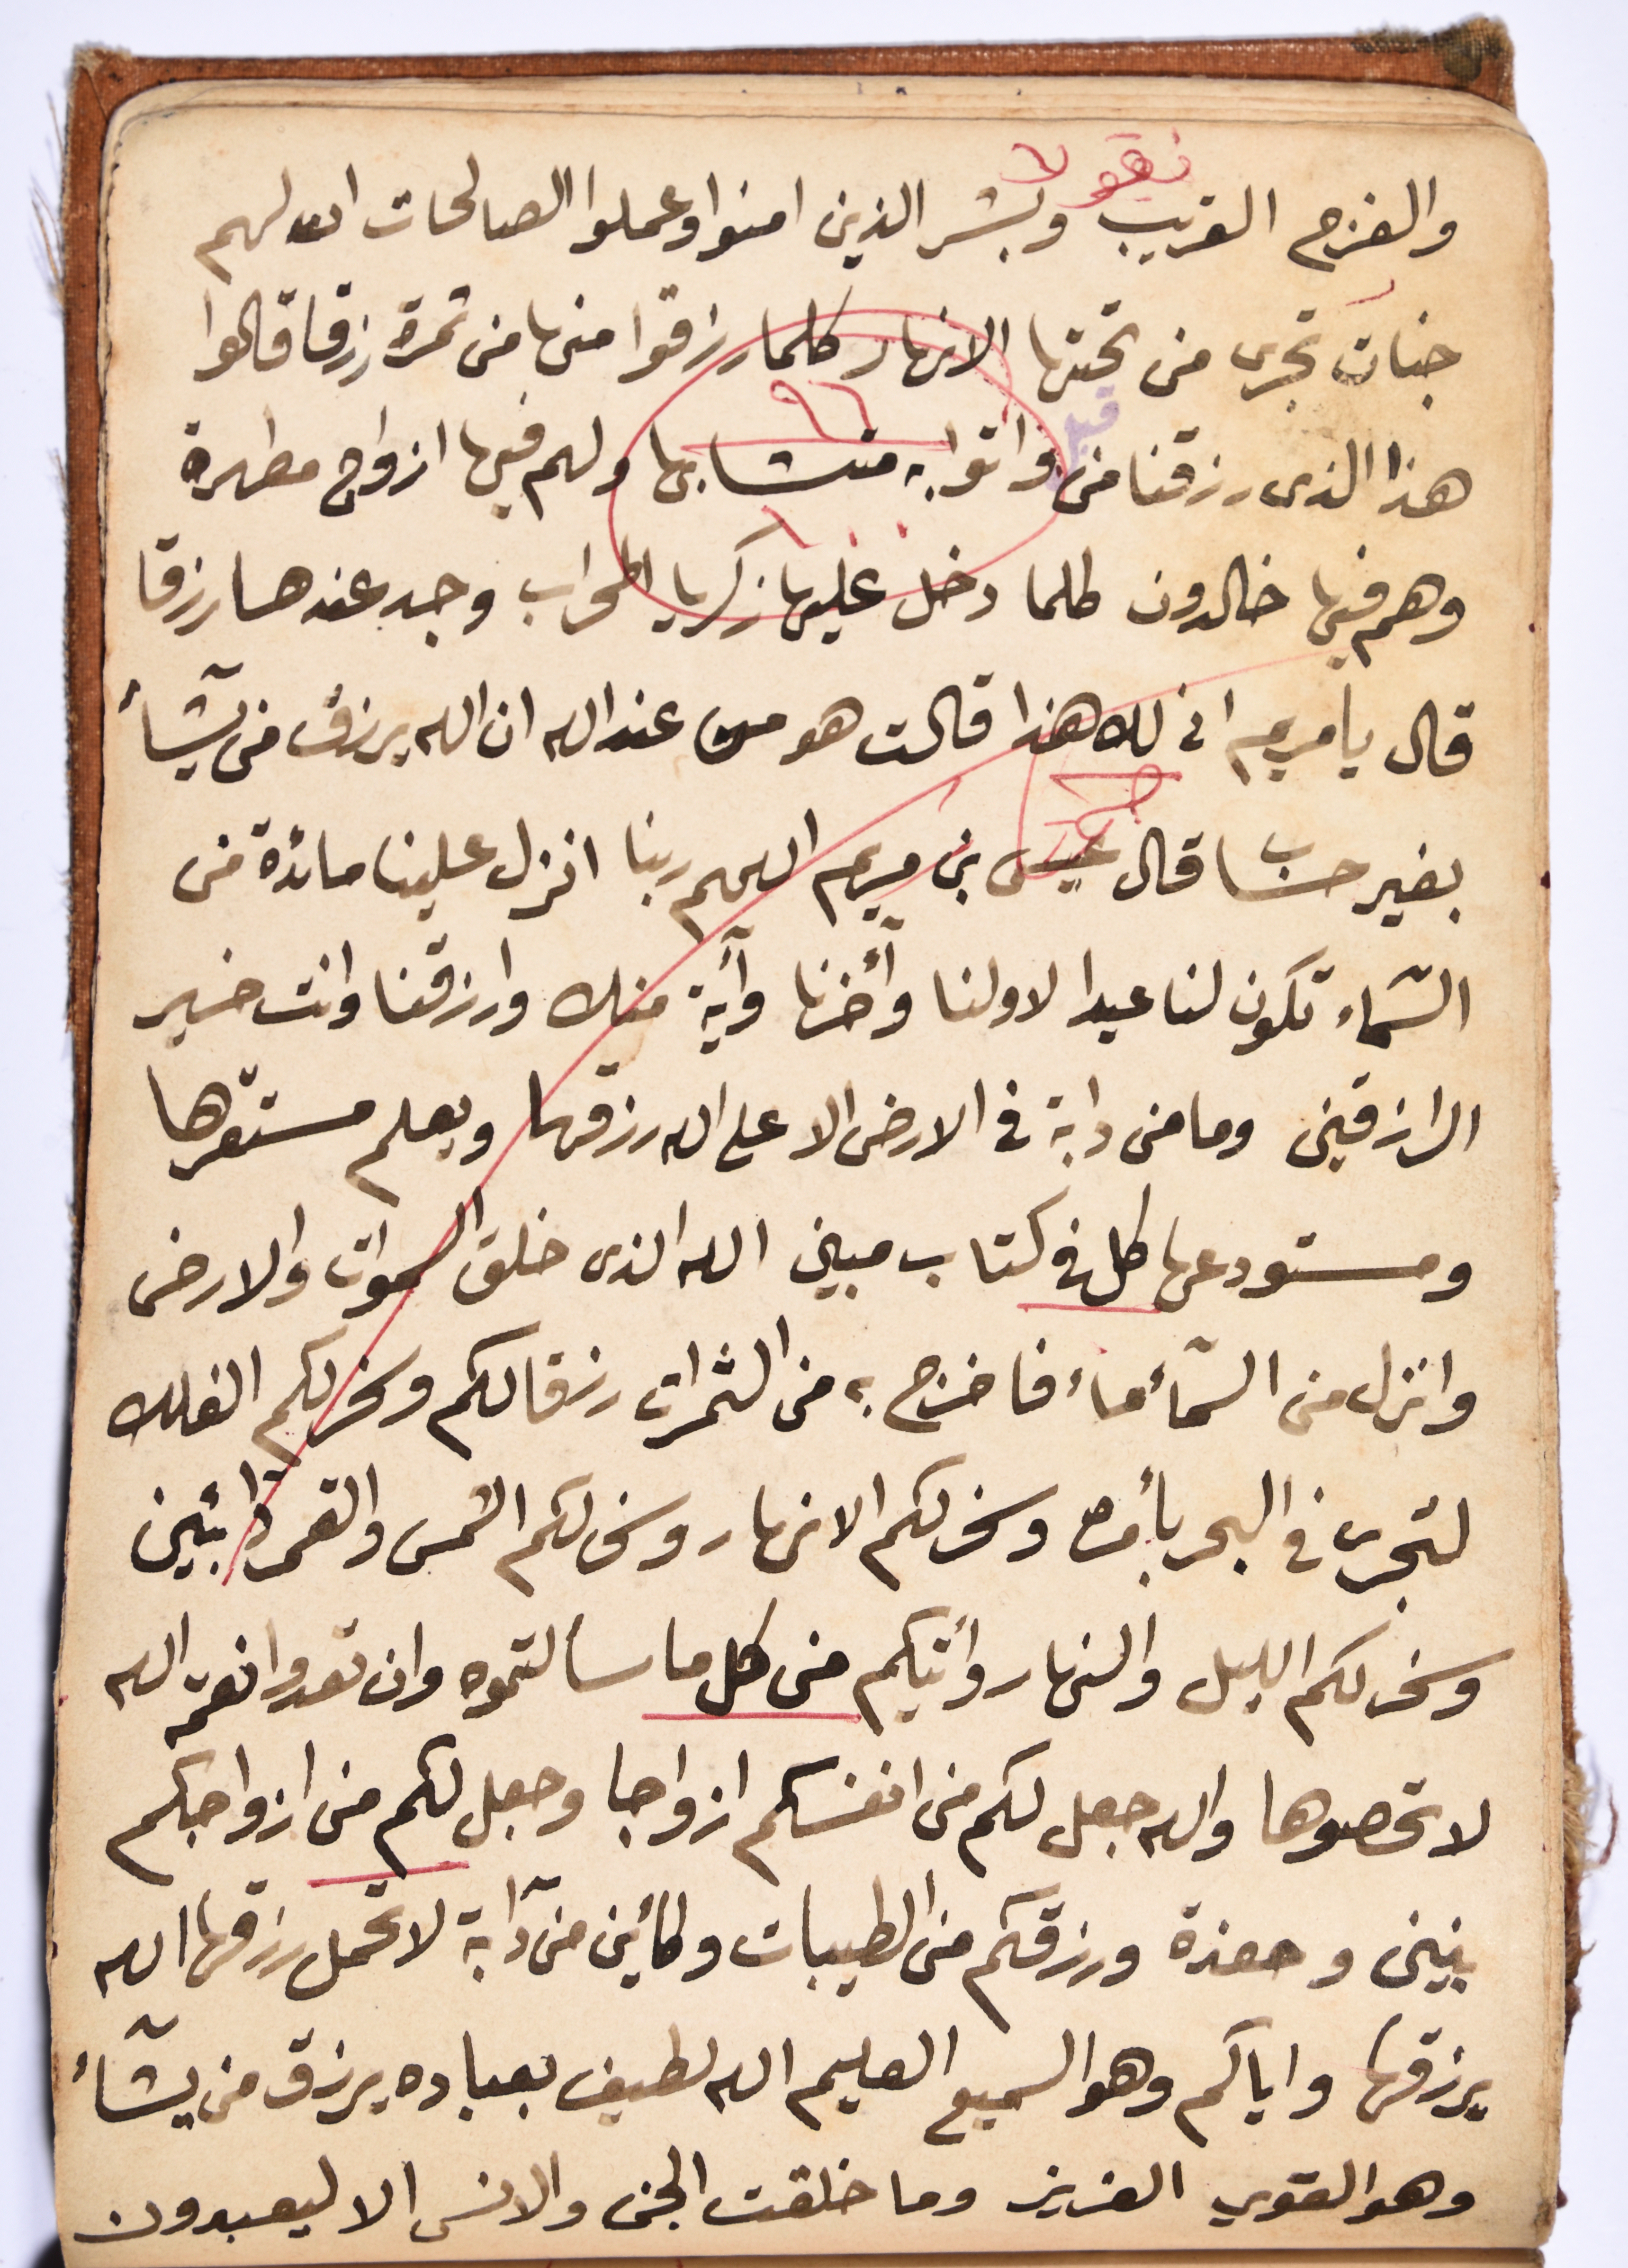 والفرج القريب وبشر الذين امنوا وعملوا الصالحات ان لهم
جنات تجرى من تحتها الانهار كلما رزقوا منها من ثمرة رزقا قالوا
هذا الذى رزقنا من قبل واتوا به متشابها ولهم فيها ازواج مطهرة
وهم فيها خالدون كلما دخل عليها زكريا المحراب وجد عندها رزقا
قال يا مريم انى لك هذا قالت هو من عند الله ان الله يرزق من يشآأ
بغير حساب قال عيسى بن مريم اللهم ربنا انزل علينا مائدة من
السّماء تكون لنا عيدا لاولنا وأخرنا وآية منك وارزقنا وانت خير
الرازقين وما من دابة فى الارض الا على الله رزقها ويعلم مستقرّها
ومستودعها كل فى كتاب مبين الله الذى خلق السموات والارض
وانزل من السّمأ مأ فاخرج به من الثمرات رزقا لكم وسخر لكم الفلك
لتجرى فى البحر بأمره وسخر لكم الانهار وسخر لكم الشمس والقمر دائبين
وسخر لكم الليل والنهار وأتيكم من كل ما سألتموه وان تعدوا نعمة الله
لا تحصوها والله جعل لكم من انفسكم ازواجا وجعل لكم من ازواجكم
بنين وحفدة ورزقكم من الطيبات وكأين من دآبة لا تحمل رزقها الله
يرزقها واياكم وهو السميع العليم الله لطيف بعباده يرزق من يشآأ
وهو القوي العزيز وما خلقت الجن والانس الا ليعبدون